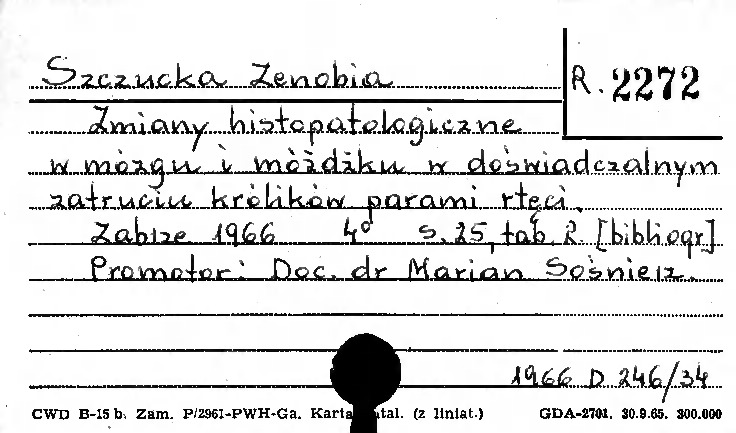 Szczucka Zenobia
R. 2272
Zmiany histopatologiczne
w mózgu i móżdżku w doświadczalnym
zatruciu królików parami rtęci.
Zabrze 1966 4° s. 25, tab. 2. [bibliogr]
Promotor: Doc. dr Marian Sośnierz.
1966 D 246/34
CWD B-15 b. Zam. P/2961-PWH-Ga. Karta tal. (z liniat.) GDA-2701. 30.9.65. 300.000